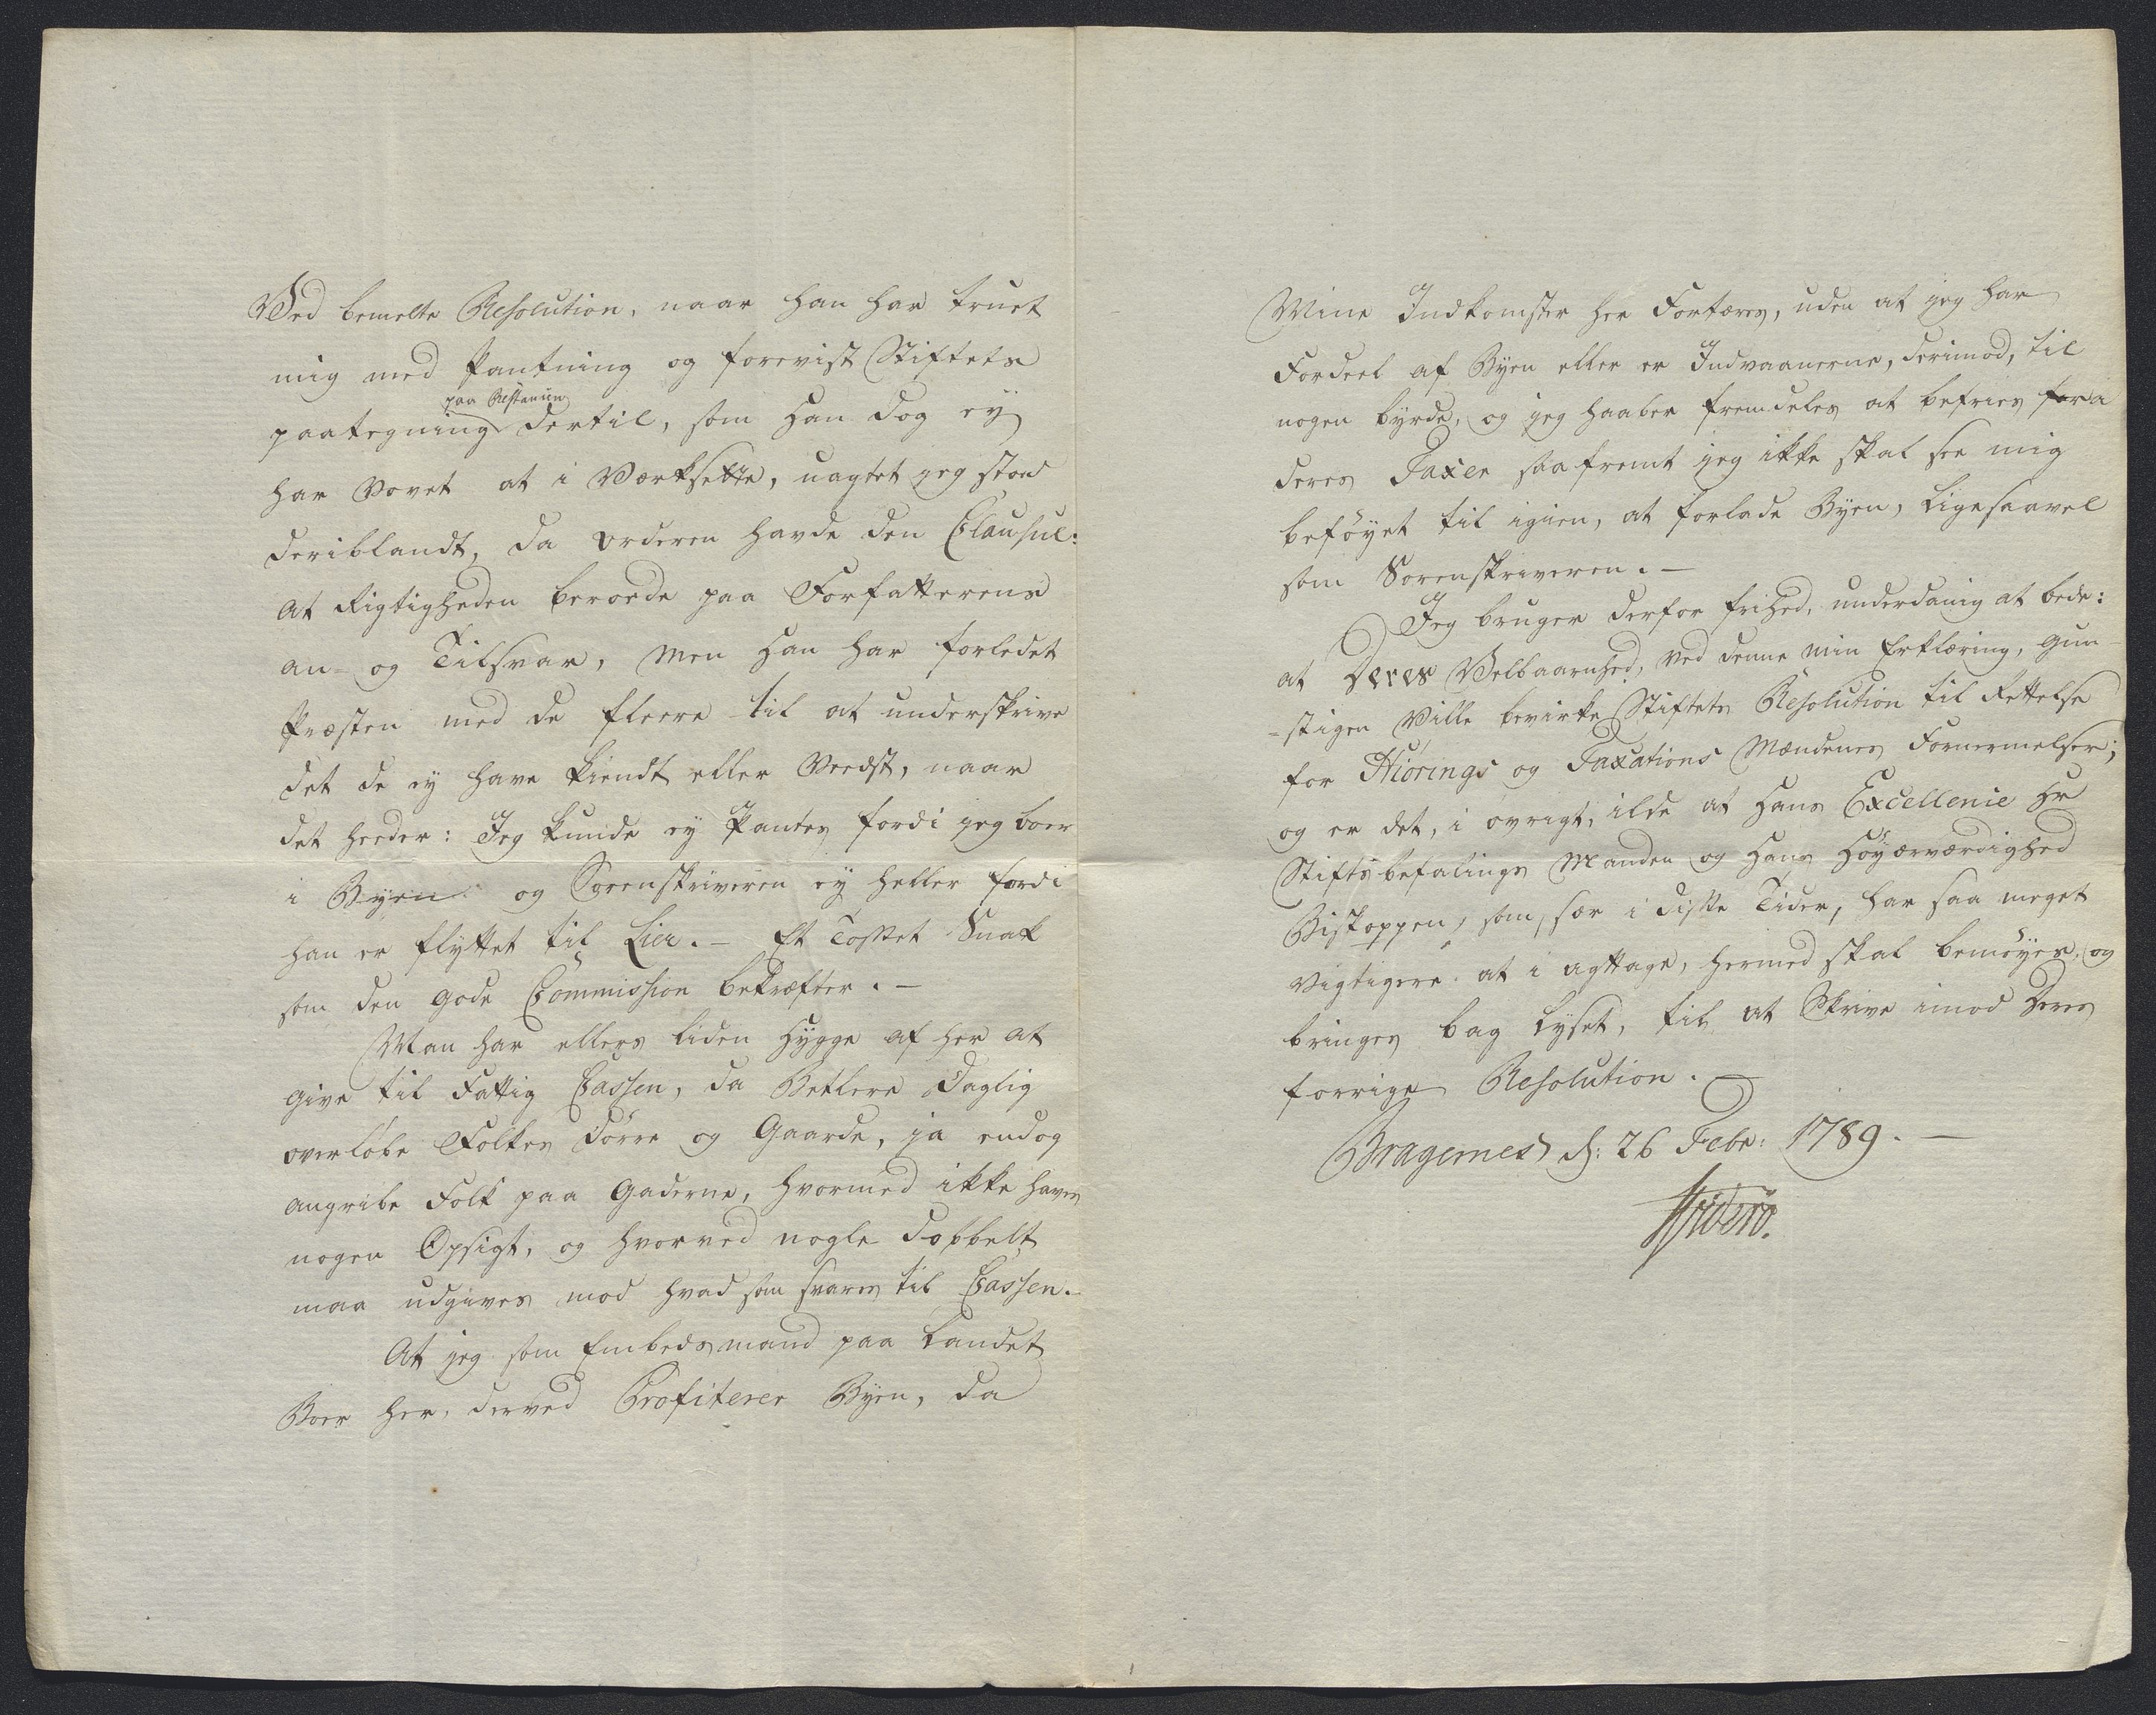 Ved bemelte Resolution, naar han har truet
mig med Pantning og foreviist Stiftets
paa Restancen
paategning dertil, som han dog ey
har vovet at i Værksette, uagtet jeg stod
deriblandt, da orderen havde den Clausul:
at Rigtigheden beroede paa Forfatterens
an- og Tilsvar, men han har forledet
Præsten med de fleere til at underskrive
det de ey have kiendt eller Veedst, naar
det heeder: Jeg kunde ey Pantes fordi jeg boer
i Byen og Sorenskriveren ey heller fordi
han er flyttet til Lier. - Et Tosset Snak
som den gode Commission bekræfter. -
Man har ellers liden Hygge af her at
give til Fattig Cassen, da Betlere Daglig
overløbe Folkes Dørre og Gaarde, ja endog
angribe Folk paa Gaderne, hvormed ikke haves
nogen Opsigt, og hvorved nogle dobbelt
maa udgives mod hvad som svares til Cassen.
At jeg som Embedsmand paa Landet
Boer her, derved Profiterer Byen, da
Mine Indkomster her Fortæres, uden at jeg har
Fordeel af Byen eller er Indvaanerne, derimod, til
nogen byrde, og jeg haaber fremdeles at befries for
deres Taxer saafremt jeg ikke skal see mig
beføyet til igien, at forlade Byen, ligesaavel
som Sorenskriveren. -
Jeg bruger derfor frihed, underdanig at bede:
at Deres Velbaarenhed, ved denne min Erklæring, gun
=stigen Ville bevirke Stiftets Resolution til Rettelse
for Hiørings og Taxations Mændenes Fornermelser;
og er det, i øvrigt, ilde at Hans Excellence Hr
Stiftsbefalings Manden og Hans Høyærværdighed
Biskoppen, som, før i disse Tider, har saa meget
Vigtigere at i agttage, hermed skal bemøyes, og
bringes bag Lyset, til at Skrive imod Deres
forrige Resolution. -
Bragernes d: 26 Febr: 1789. -